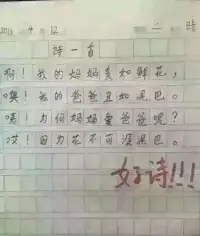 诗一首
啊！我的妈妈美如鲜花，
噢！我的爸爸丑如泥巴。
为何妈妈爱爸爸呢？
哎！因为花不可没泥巴。
好诗!!!